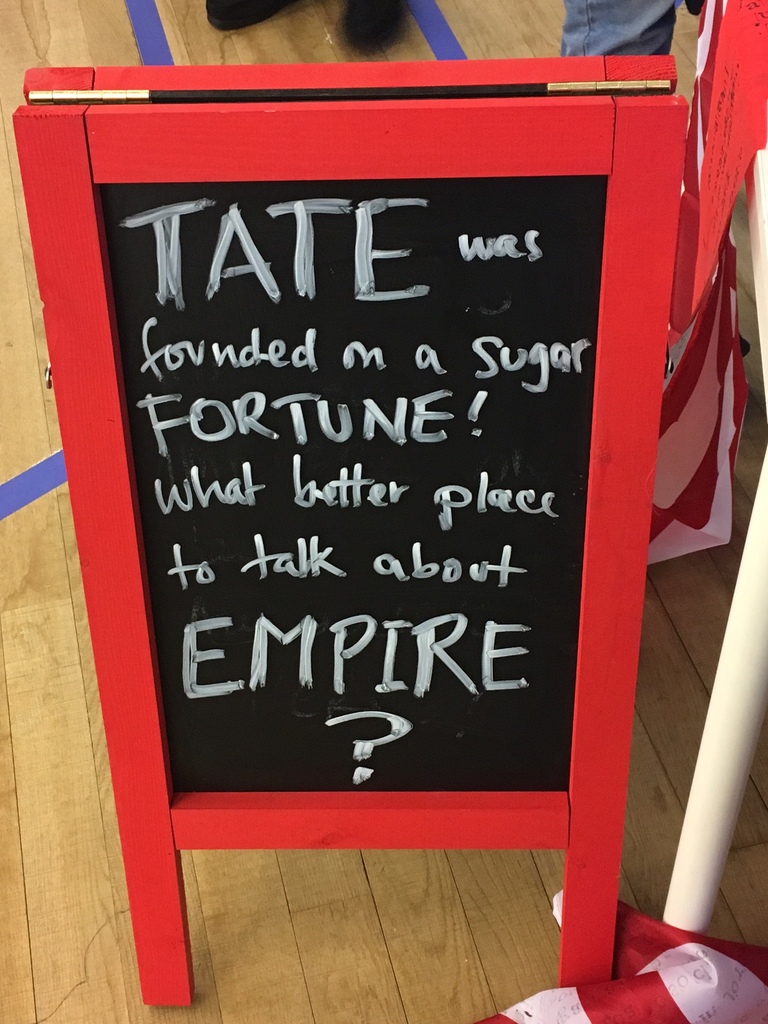 TATE was
founded on a sugar
FORTUNE!
what better place
to talk about
EMPIRE
?